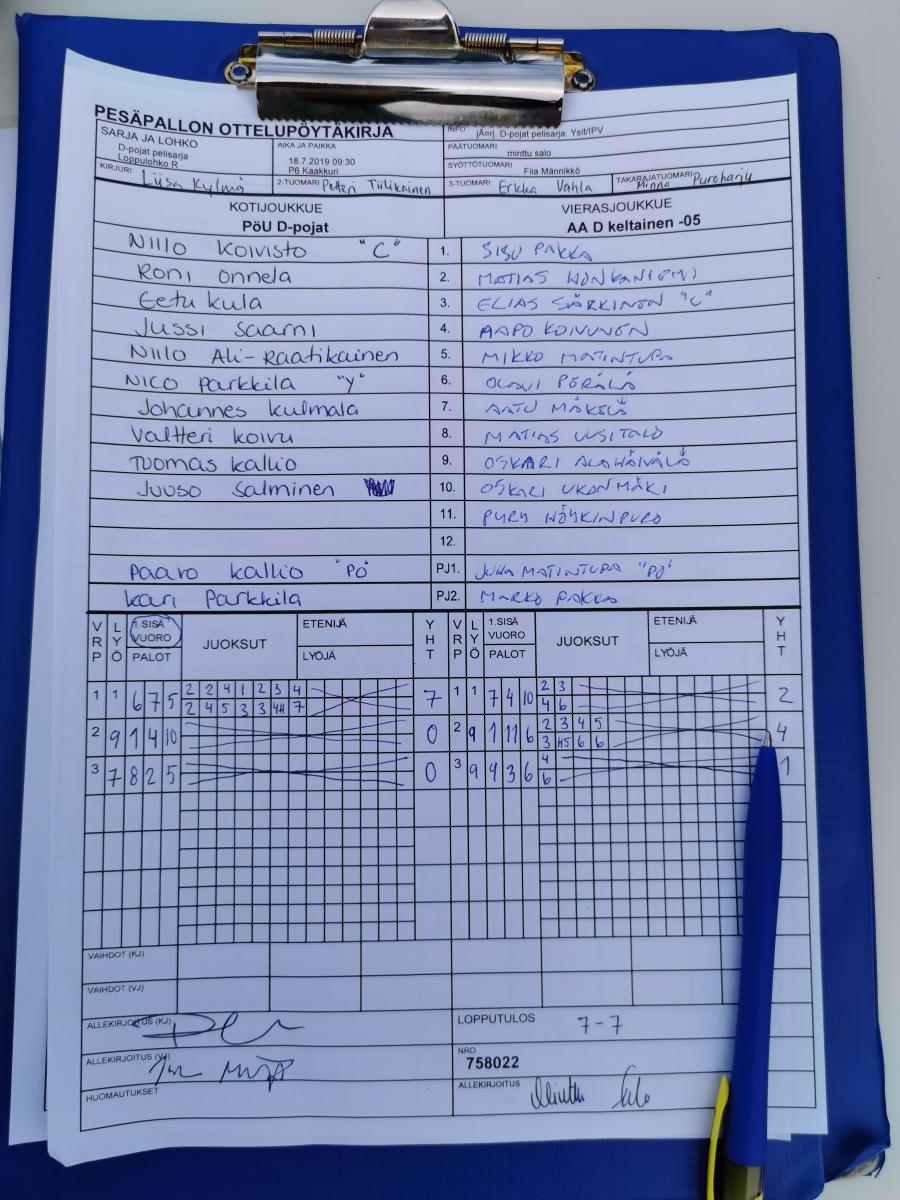 PESÄPALLON OTTELUPÖYTÄKIRJA
SARJA JA LOHKO
D-pojat pelisarja
Loppulohko R
AIKA JA PAIKKA
18.7.2019 09:30
P6 Kaakkuri
INFO
jÄ¤rj. D-pojat pelisarja: Ysit/IPV
PÄÄTUOMARI
minttu salo
SYÖTTÖTUOMARI
Fiia Männikkö
KIRJURI Liisa Kylmä
2-TUOMARI Petteri Tiilikainen
3-TUOMARI Erkka Vahla
TAKARAJATUOMARI Minna Puroharju
KOTIJOUKKUE
PöU D-pojat
VIERASJOUKKUE
AA D keltainen -05
Niilo Koivisto "C" 1. SISU PAKKA
Roni Onnela 2. MATIAS
Eetu Kula 3. ELIAS SÄRKINEN "C"
Jussi Saarni 4. AAPO KOIVUNEN
Niilo Ali-Raatikainen 5. MIKKO MATINTUPA
Nico Parkkila "Y" 6. OLAVI PERÄLÄ
Johannes Kulmala 7. AATU MÄKELÄ
Valtteri Koivu 8. MATIAS UUSITALO
Tuomas Kallio 9. OSKARI
Juuso Salminen 10. OSKARI UKONMÄKI
11.
12.
Paavo Kallio "PO" PJ1. JUHA MATINTUPA "PJ"
Kari Parkkila PJ2. MARKO PAKKA
VRP LYÖ 1.SISÄ VUORO PALOT JUOKSUT ETENIJÄ LYÖJÄ YHT VRP LYÖ 1.SISÄ VUORO PALOT JUOKSUT ETENIJÄ LYÖJÄ YHT
1 1 6 7 5 2 2 4 1 2 3 4 7 1 1 7 4 10 2 3 2
2 4 5 3 3 4H 7 4 6
2 9 1 4 10 0 2 9 1 11 6 2 3 4 5 4
3 H5 6 6
3 7 8 2 5 0 3 9 4 3 6 4 1
6
VAIHDOT (KJ)
VAIHDOT (VJ)
ALLEKIRJOITUS (KJ)
LOPPUTULOS 7-7
ALLEKIRJOITUS (VJ)
NRO
758022
HUOMAUTUKSET
ALLEKIRJOITUS Minttu Salo